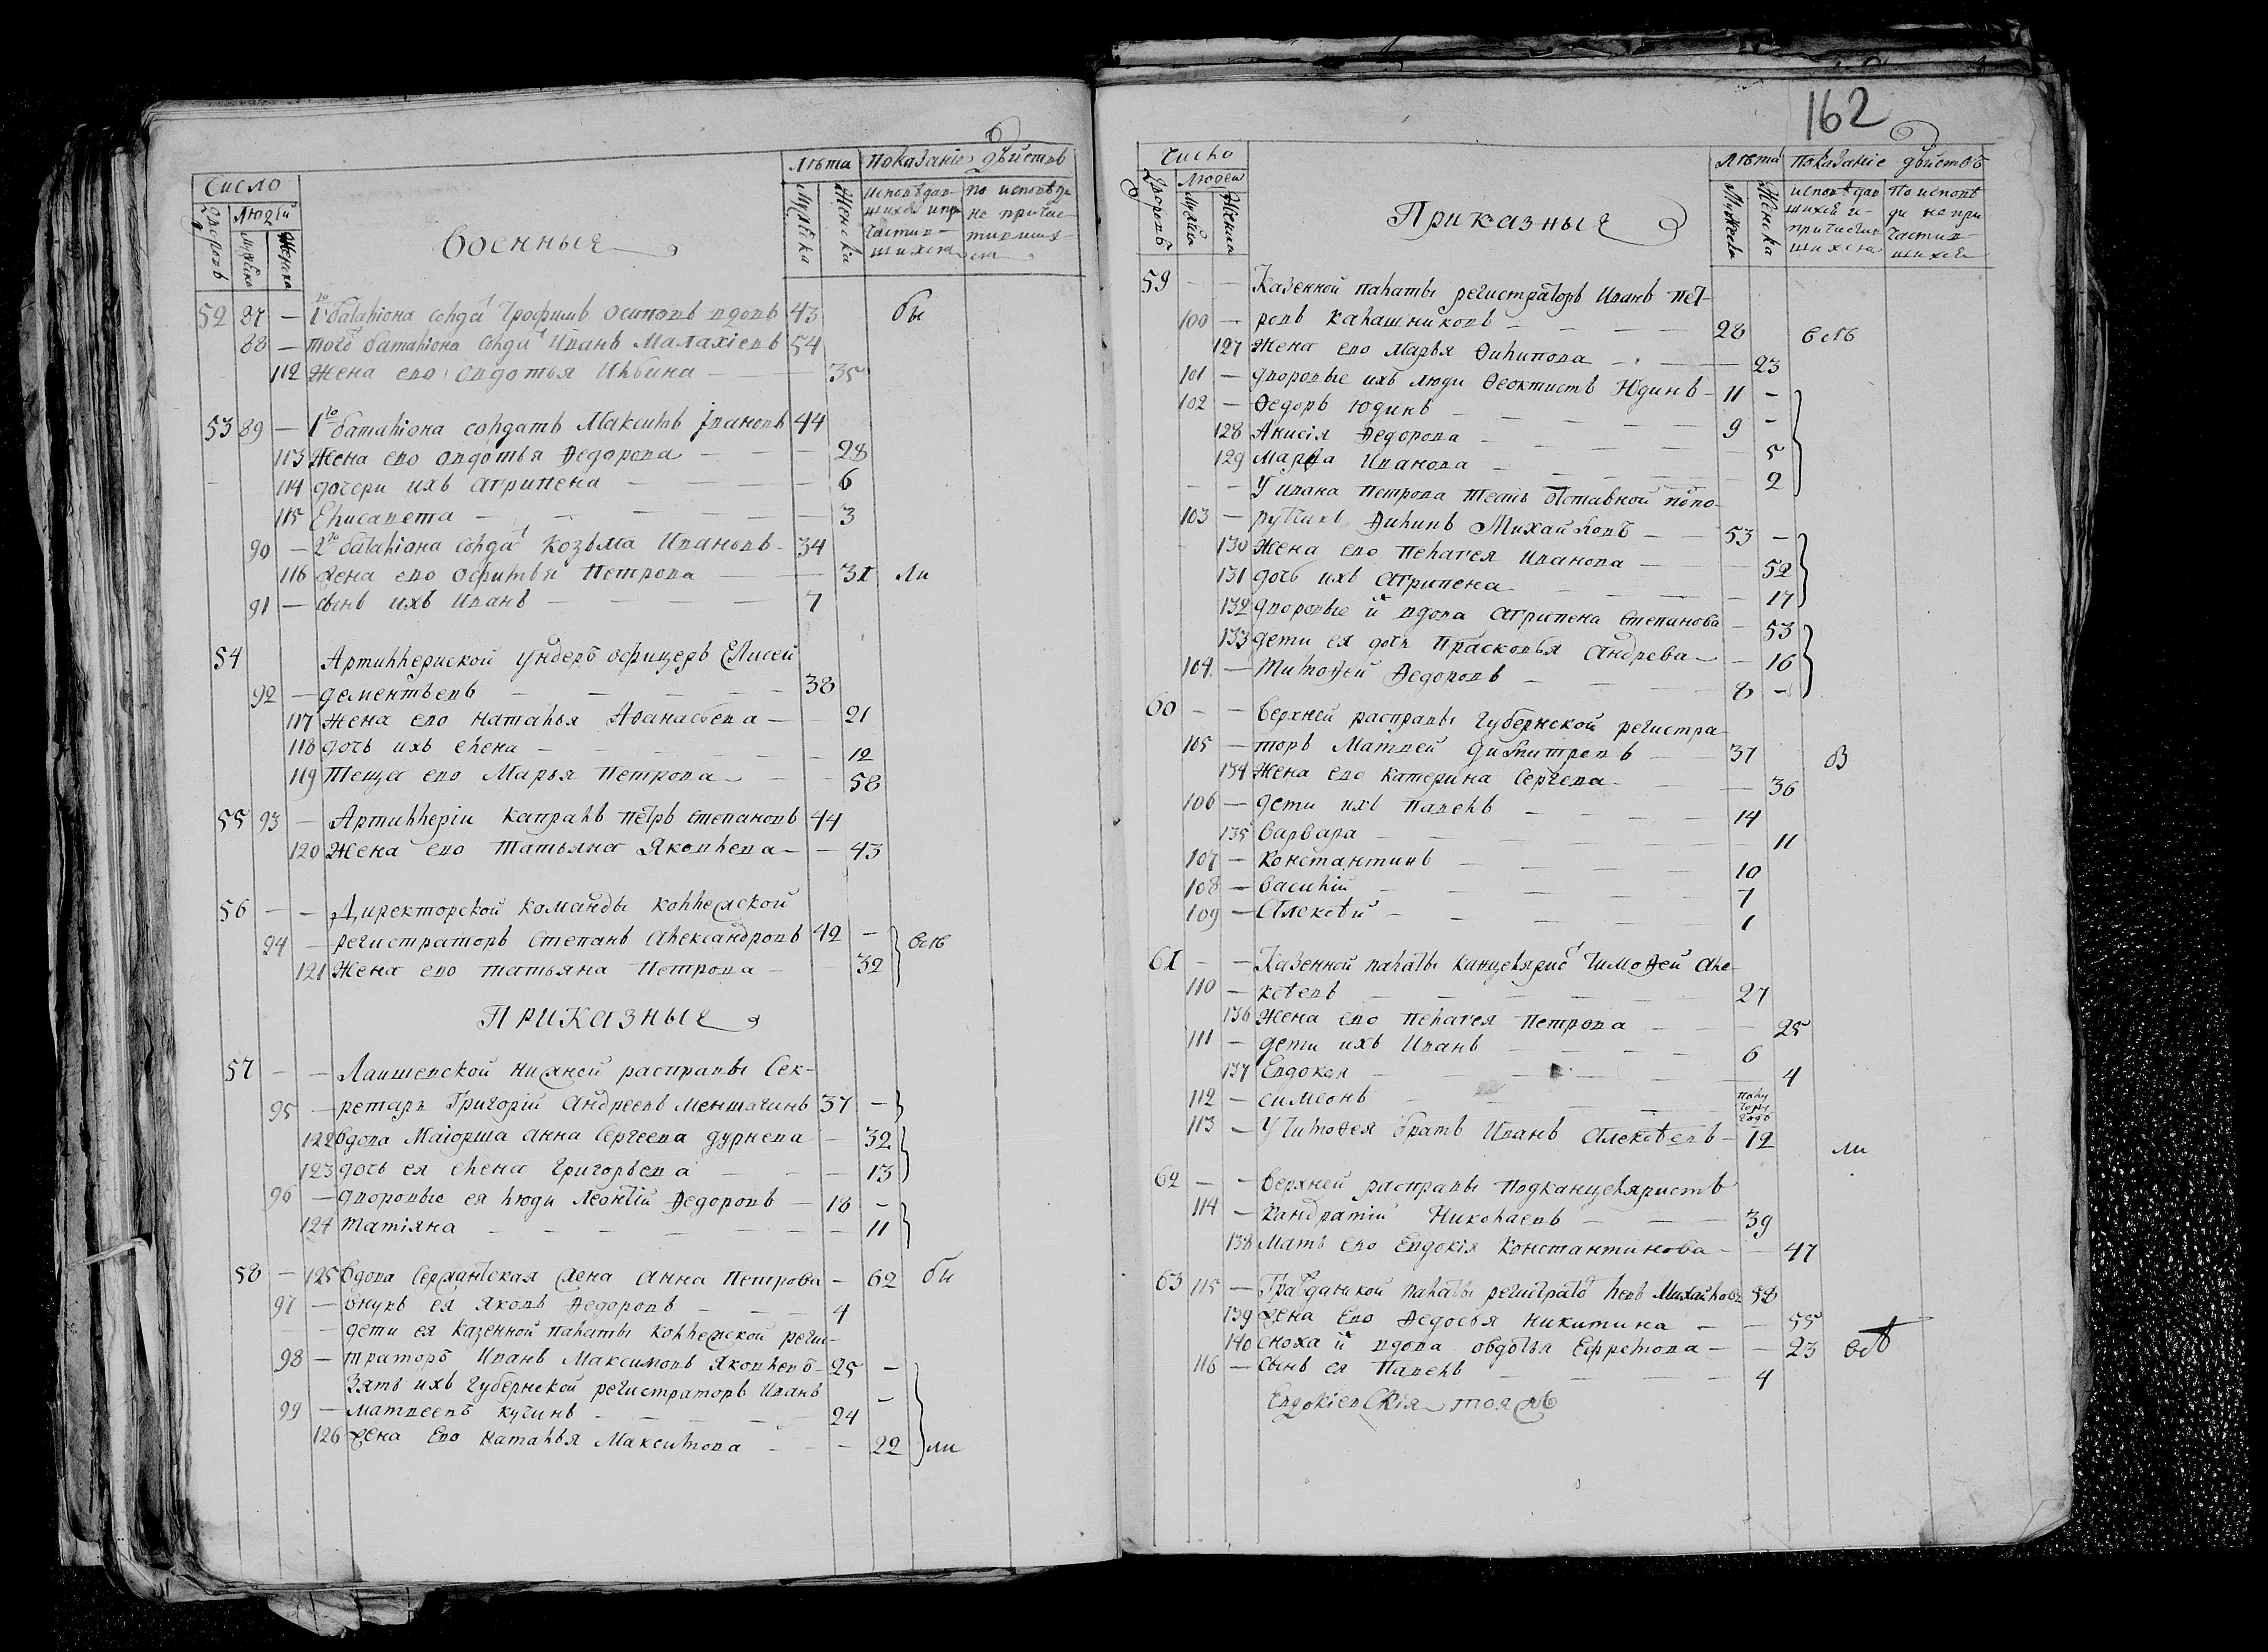 Число
Дворовъ
Людей
Мужска
Женска
Военныя
Лѣта
Мужска
Женска
Показаніе дѣйствъ
исповѣдав-
шихся и при-
частив-
шихся
по исповѣди
не причас-
тивших-
ся
52 87 — 1го баталіона солдат Трофимъ Осиповъ вдовъ 43 бы
88 — того баталіона солдат Иванъ Малахіевъ 54
112 Жена ево овдотья Ильина — 35
53 89 — 1го баталіона солдатъ Максимъ Ивановъ 44
113 Жена ево овдотья Ѳедорова — 28
114 дочери ихъ агрипена — 6
115 Елисавета — 3
90 — 2го баталіона солдат Козьма Ивановъ — 34
116 Жена ево Офимья Петрова — 31 ли
91 — сынъ ихъ Иванъ — 7
54 Артиллериской ундеръ офицеръ Елисей
92 — дементьевъ — 38
117 Жена ево наталья Аѳанасьева — 21
118 дочь ихъ елена — 12
119 Теща ево Марья Петрова — 58
55 93 — Артиллеріи капралъ петръ степановъ 44
120 Жена ево Татьяна Яковлева — 43
56 — — Директорской команды коллежской
94 — регистраторъ степанъ александровъ 42 —
121 Жена ево татьяна Петрова — 32
Приказныя
57 — — Лаишевской нижней расправы Сек-
95 — ретарь Григорій андреевъ Ментагинъ 37 —
122 Вдова Маіорша анна Сергеева дурнева — 32
123 дочь ея елена Григорьева — 13
96 — дворовые ея люди Леонтій Ѳедоровъ — 18 —
124 Татіяна — 11
58 — 125 Вдова Сержантская жена анна Петрова — 62 бы
97 — Внукъ ея Яковъ Ѳедоровъ — 4
— дети ея казенной палаты коллежской реги-
98 — траторъ Иванъ Максимовъ Яковлевъ — 25 —
Зять ихъ губернской регистраторъ Иванъ
99 — матвеевъ кучинъ — 24 —
126 Жена ево наталья Максимова — 22 ли
162
Число
Дворовъ
Людей
Мужска
Женска
Приказныя
Лѣта
Мужска
Женска
Показаніе дѣйствъ
исповѣдав
шихся и
причастив
шихся
по исповѣ
ди не при
частив-
шихся
59 — — Казенной палаты регистраторъ Иванъ пет-
100 — ровъ калашниковъ — 28
127 Жена ево Марья Филипова — 23
101 — дворовые ихъ люди Ѳеоктистъ Юдинъ — 11 —
102 — Ѳедоръ юдинъ — 9 —
128 Анисія Ѳедорова — 5
129 марѳа Иванова — 2
— — У ивана петрова тесть отставной попо-
103 — рутчикъ Филипъ Михайловъ — 53 —
130 Жена ево пелагея иванова — 52
131 дочь ихъ агрипена — 17
132 дворовые их вдова агрипена Степанова — 53
133 дети ея дочь прасковья андрева — 16
104 — тимоѳей Ѳедоровъ — 8 —
60 — — Верхней расправы губернской регистра
105 — торъ Матвей димитревъ — 37
134 Жена ево катерина Сергева — 36
106 — дети ихъ павелъ — 14
135 Варвара — 11
107 — константинъ — 10
108 — василій — 7
109 — Алексѣй — 1
61 — — Казенной палаты канцелярист Тимоѳей але-
110 — ксѣевъ — 27
136 Жена ево пелагея петрова — 25
111 — дети ихъ Иванъ — 6
137 Евдокея — 4
112 — симеонъ — полу
тору
годо
113 — У тимоѳея братъ Иванъ Алексѣевъ — 12 ли
62 — — Верхней расправы подканцеляристъ
114 — Кандратій Николаевъ — 39
138 Мать ево Евдокія Константинова — 47
63 115 — Гражданской палаты регистрато левъ Михайловъ 58
139 Жена Ево Ѳедосья никитина — 55
140 сноха их вдова овдотья Ефремова — 23
116 — сынъ ея Павелъ — 4
Евдокіевскія тояжъ